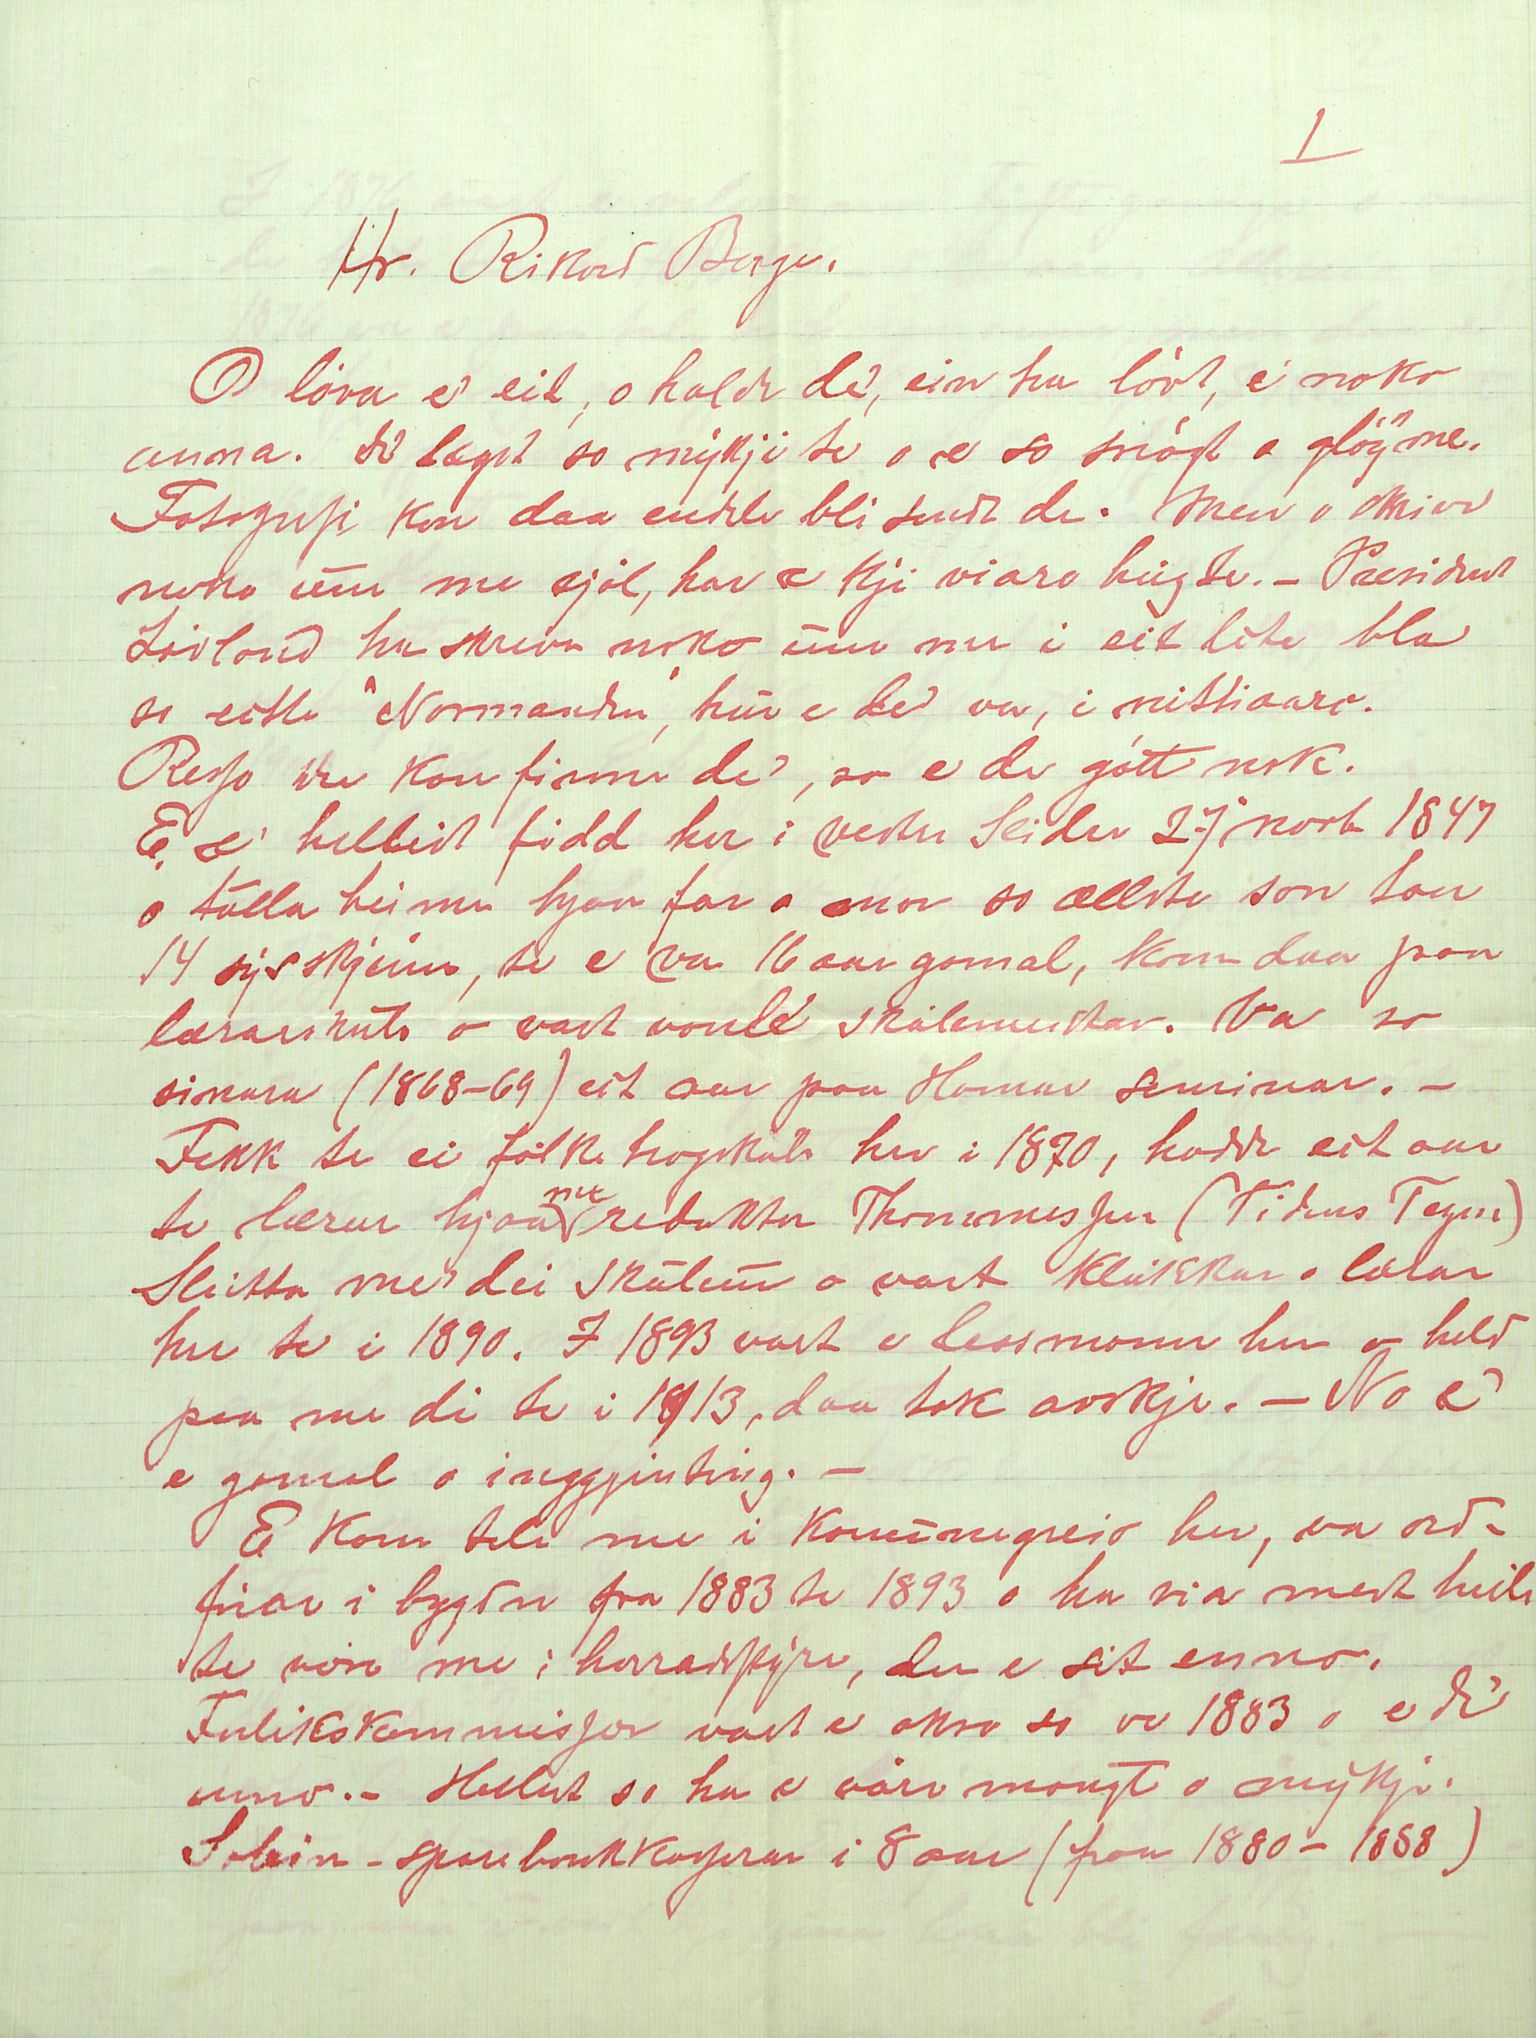 1
Hr. Rikard Berge.
O lòva e' eit, o halde de', ein ha lòvt, e' noko
anna. De' lagst so mykji te o e so snògt o gløyme.
Fotografi kan daa endele bli sendt de. Men o skrive
noko um me sjøl, har e kji viare hug te. – President
Lövland ha skreve noko um me i eit lite bla
so eitte "Normanden", hur e de' va, i nittiaaro.
Resso du kan finne de', so e de gòtt nok.
E æ' helleist fødd her i vestre Slidre 27' novb 1847
o tulla heime hjaa far o mor so ællste son tau
14 sysskjeinu, te e va 16 aar gamal, kom daa paa
lærarskule o vart vonlé skulemeistar. Va so
sinara (1868–69) eit aar paa Hamar seminar. –
Fekk te ei folkehogskule her i 1870, hadde eit aar
te lærar hjaa me redaktør Thommessen (Tidens Tegn)
Slutta me' dei skulein o vart klukkar o lærar
her te i 1890. I 1893 vart e lessmann her o held
paa me di te i 1913, daa tok avskje. – No e'
e gamal o inggjinting. –
E kom tile me i komunegreio her, va ord-
fører i bygden fra 1883 te 1893 o ha sia mest heile
te vøre me i herradstyre, der e sit enno.
Forlikskommisjer vart e okso so ve 1883 o e de'
enno. – Hellest so ha e vøre mangt o mykji.
Solein – sparebankkasserar i 8 aar (fraa 1880 – 1888)